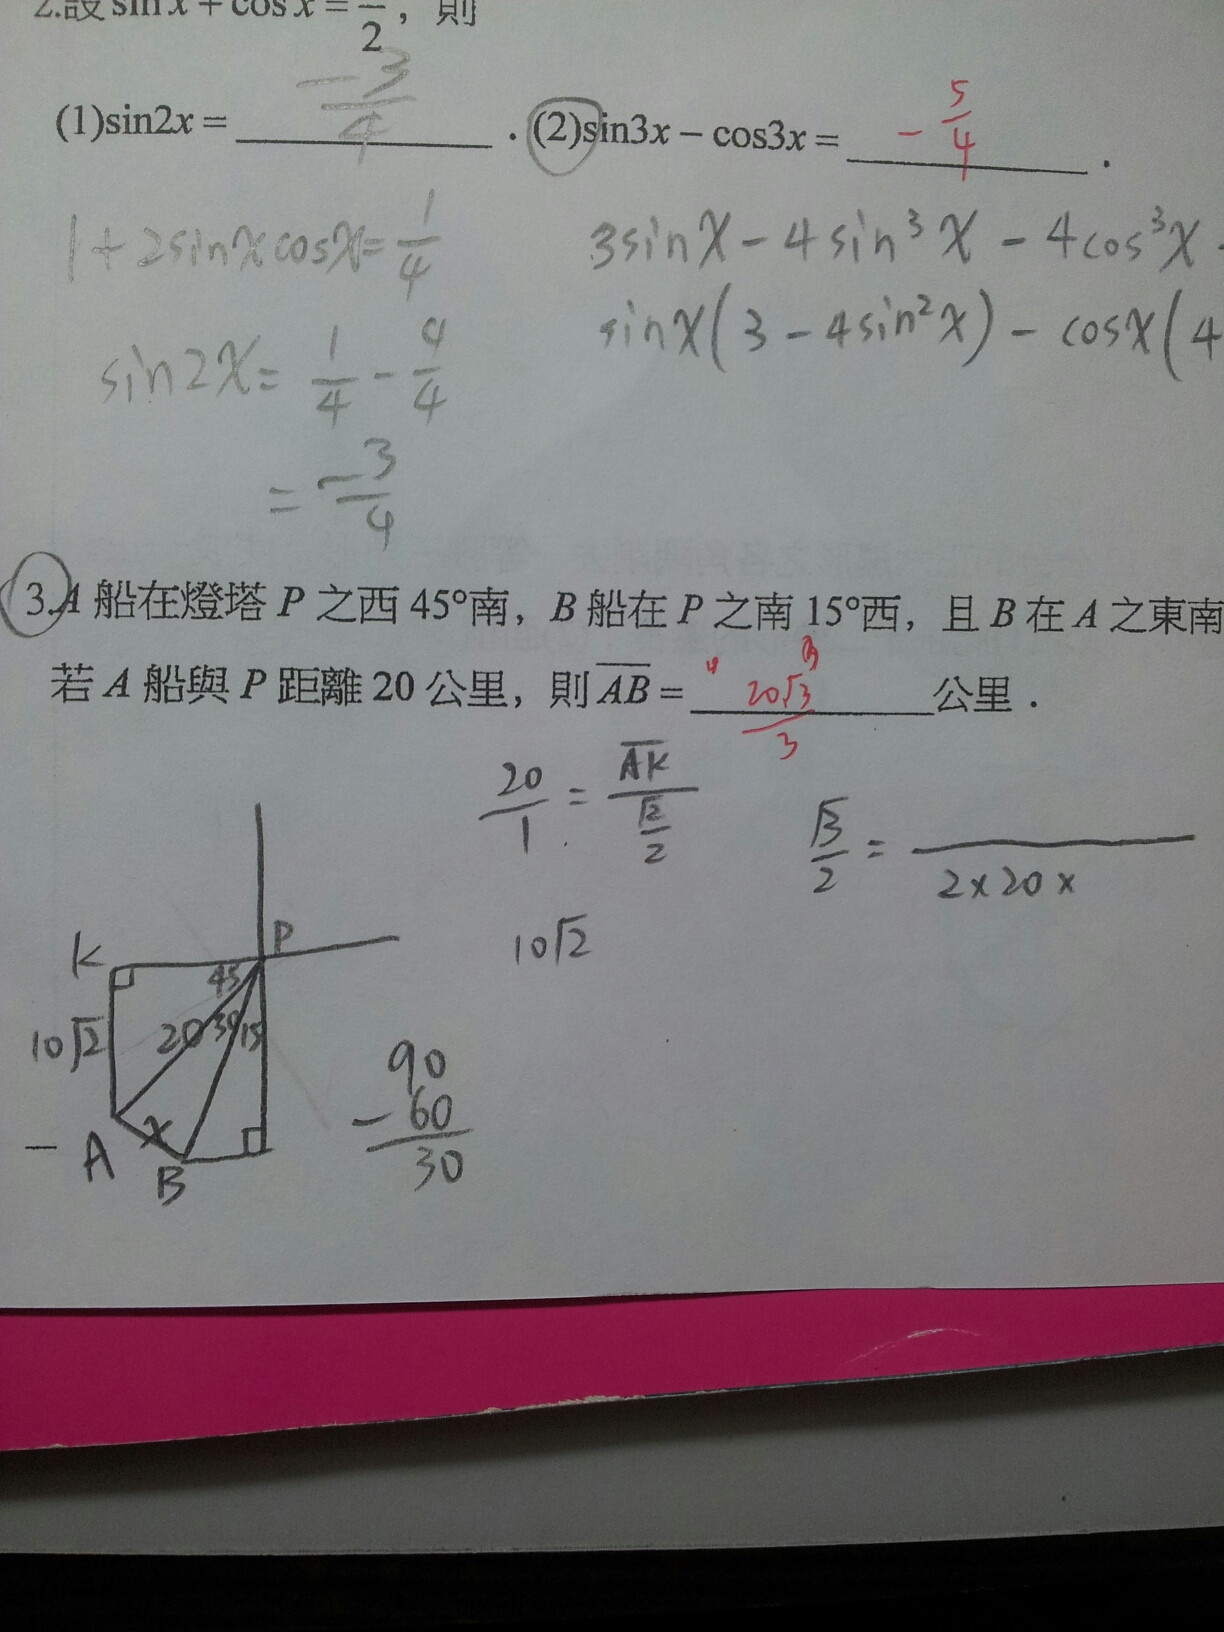 2.設 sin x + cos x = 1/2 , 則
(1)sin2x = -3/4 . (2)sin3x − cos3x = -5/4 .
1 + 2sinxcosx = 1/4
3sinx − 4sin³x − 4cos³x
sinx(3 − 4sin²x) − cosx(4
sin2x = 1/4 − 4/4
= -3/4
3.A 船在燈塔 P 之西 45°南，B 船在 P 之南 15°西，且 B 在 A 之東南
若 A 船與 P 距離 20 公里，則 AB = 20√3/3 公里．
20/1 = AK/(√2/2)
√3/2 = 2×20×
10√2
K P
45
10√2 20 30 15
A x B
90
− 60
30